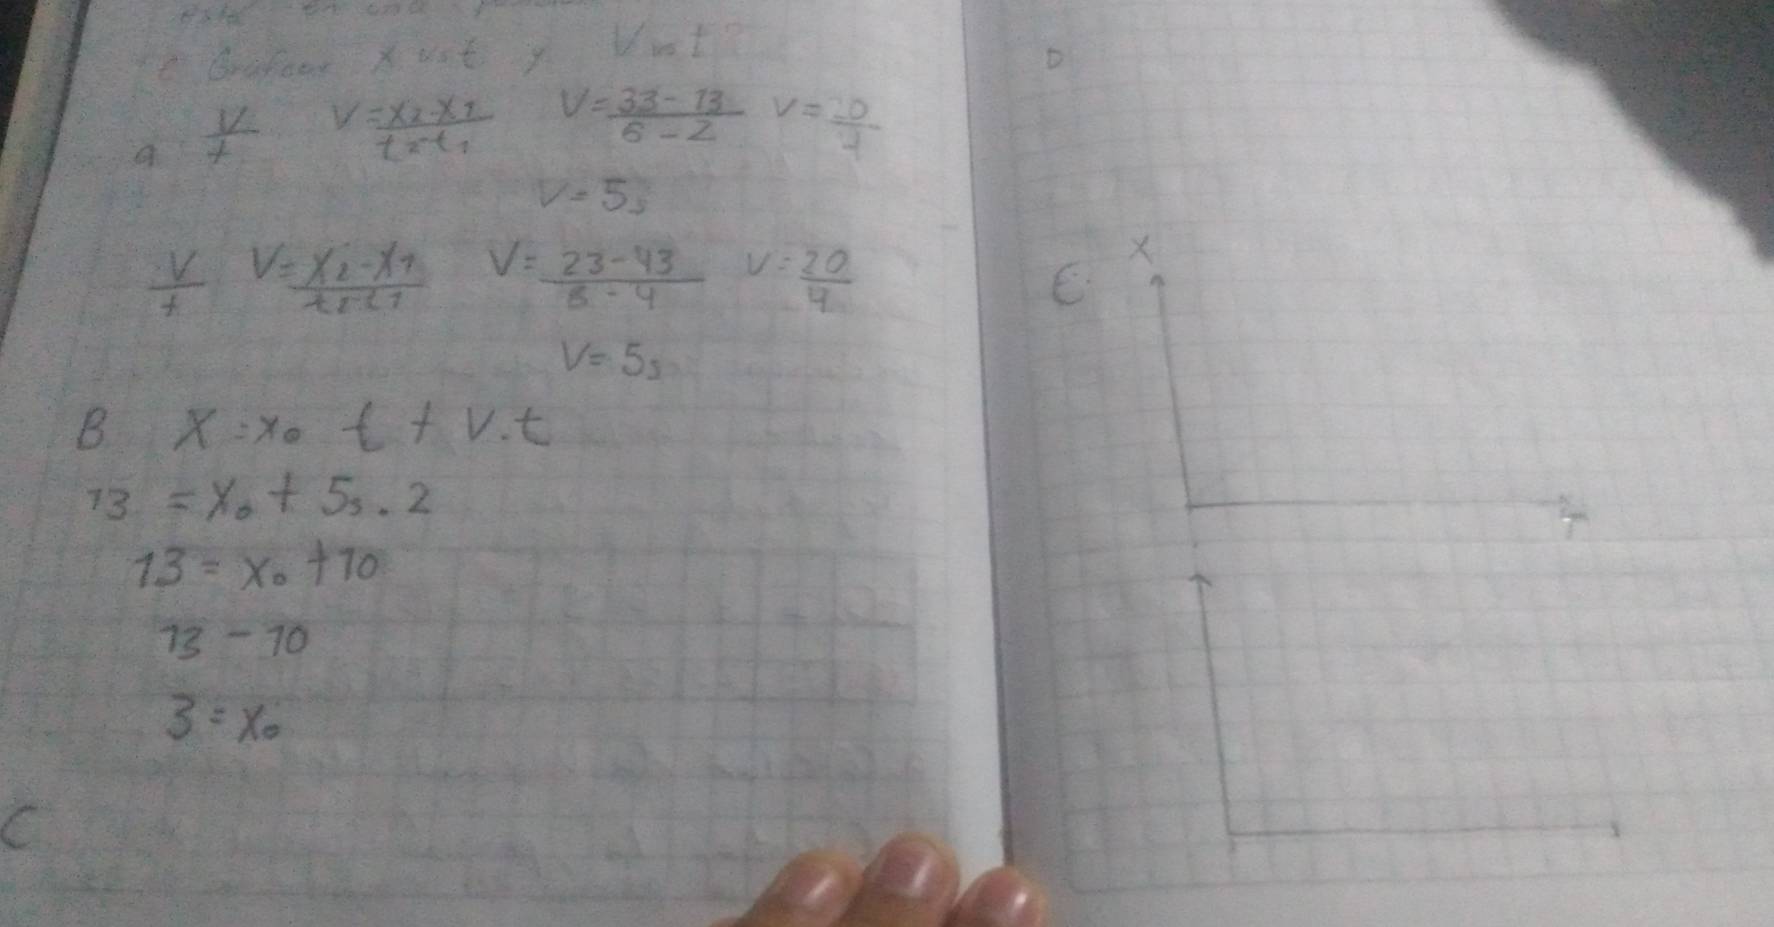 está en una
c Graficar x vst y V vs t?
a V/t V=x2-x1/t2-t1 V=33-13/6-2 V=20/4
V=5s
V/t V=x2-x1/t2-t1 V=23-43/8-4 V=20/4
V=5s
B X=x0 t + V.t
13 = x0 + 5s.2
13 = x0 +10
13 - 10
3 = x0
C
D
E. X